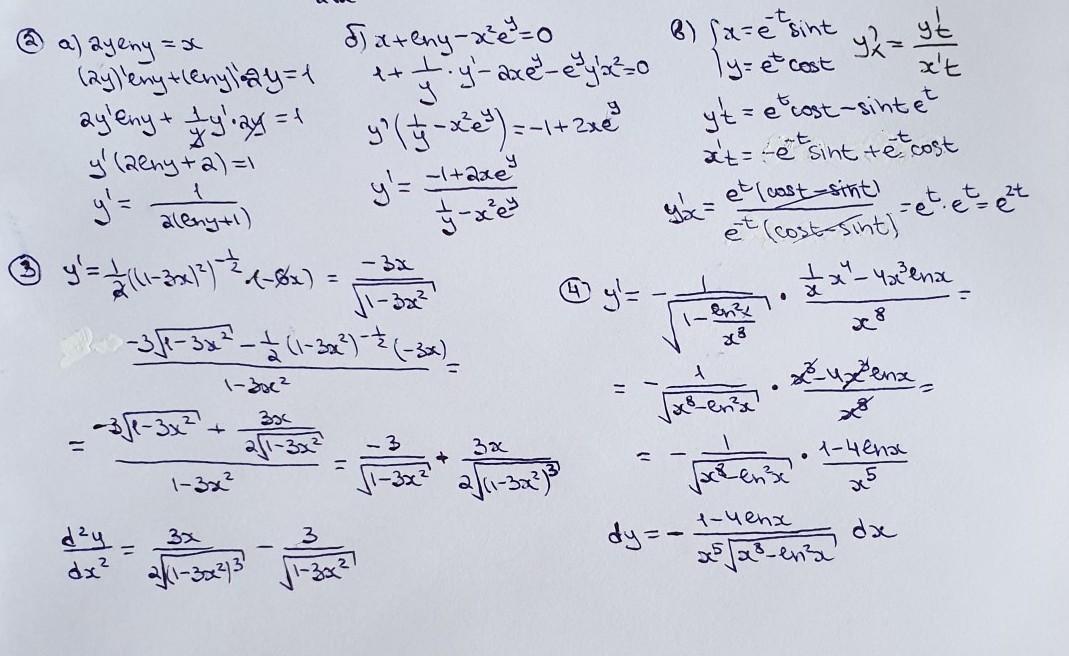 ② a) 2yℓny = x
(2y)'ℓny+(ℓny)'·2y=1
2y'ℓny + 1/y y'·2y = 1
y'(2ℓny+2)=1
y' = 1/2(ℓny+1)
б) x+ℓny-x²e^y=0
1+ 1/y · y' - 2xe^y - e^y y'x²=0
y'(1/y - x²e^y) = -1+2xe^y
y' = (-1+2xe^y)/(1/y - x²e^y)
в) {x=e^-t sint y'x = y't/x't
y= e^t cost
y't = e^t cost - sint e^t
x't = -e^-t sint + e^-t cost
y'x = e^t(cost-sint)/e^-t(cost-sint) = e^t · e^t = e^2t
③ y' = 1/2((1-3x)²)^-1/2 · (-6x) = -3x/√(1-3x²)
(-3√(1-3x²) - 1/2(1-3x²)^-1/2 (-3x))/(1-3x²) =
= (-3√(1-3x²) + 3x/2√(1-3x²))/(1-3x²) = -3/√(1-3x²) + 3x/2√((1-3x²)³)
d²y/dx² = 3x/2√((1-3x²)³) - 3/√(1-3x²)
④ y' = - 1/√(1-ℓn²x/x⁸) · (1/x x⁴ - 4x³ℓnx)/x⁸ =
= - 1/√(x⁸-ℓn²x) · (x³-4x³ℓnx)/x⁸ =
= - 1/√(x⁸-ℓn²x) · (1-4ℓnx)/x⁵
dy = - (1-4ℓnx)/(x⁵√(x⁸-ℓn²x)) dx